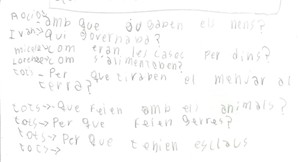 Rocío> amb que jugaben els nens?
Iván> qui governaba?
com eran les cases per dins?
com s'alimentaben?
tots> Per que tiraben el menjar al terra?
tots> que feien amb els animals?
tots> Per que feien gerres?
tots> Per que tenien esclaus
tots>